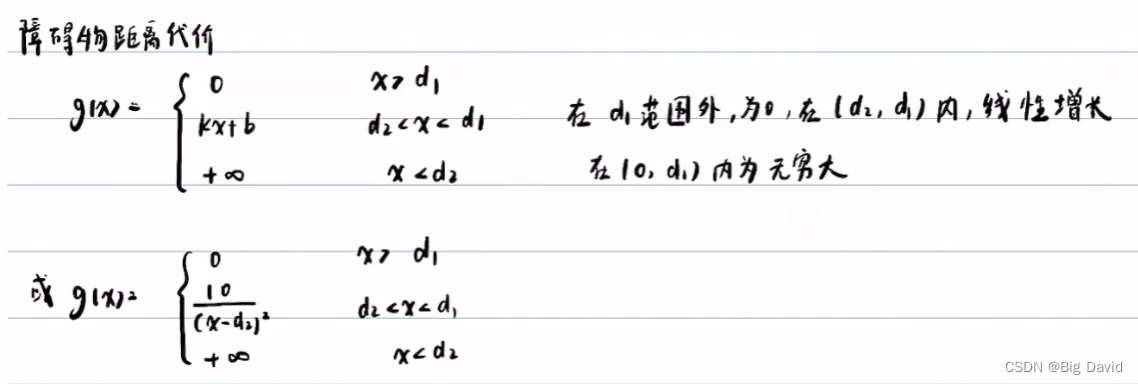 障碍物距离代价
g(x) = { 0 x> d₁
kx+b d₂<x<d₁ 在 d₁ 范围外,为0,在 (d₂, d₁) 内,线性增长
+∞ x<d₂ 在 (0, d₁) 内为无穷大
或 g(x)= { 0 x> d₁
10/(x-d₂)² d₂<x<d₁
+∞ x<d₂
CSDN @Big David